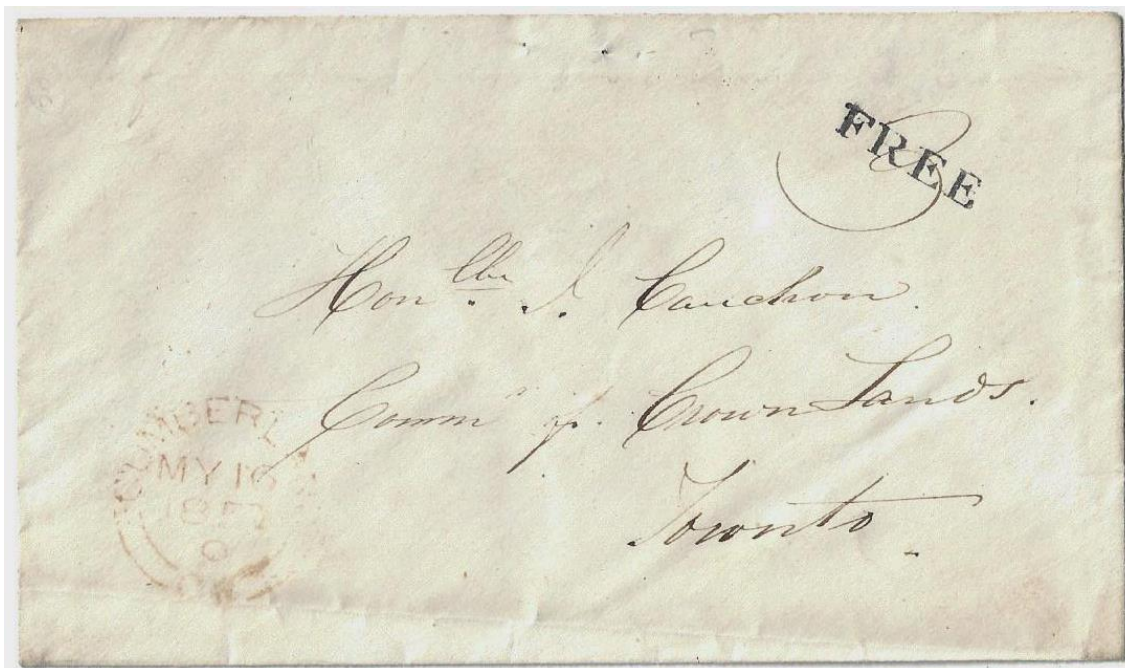 FREE
3
Honble J. Cauchon.
Commr of Crown Lands.
Toronto
CUMBERL
MY 16
1857